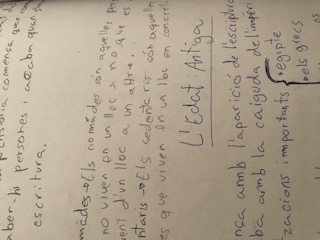 comença quan
persones i acaba quan
escritura.
mades → Els nomàdes són aquelles
no viven en un lloc si no que es
ent d'un lloc a un altre.
ntaris → Els sedentaris són aquelles
es que viven en un lloc en concret
L'Edat Antiga
nça amb l'aparició de l'escriptura
ba amb la caiguda de l'imperi
zacions importants • egipte
els grecs